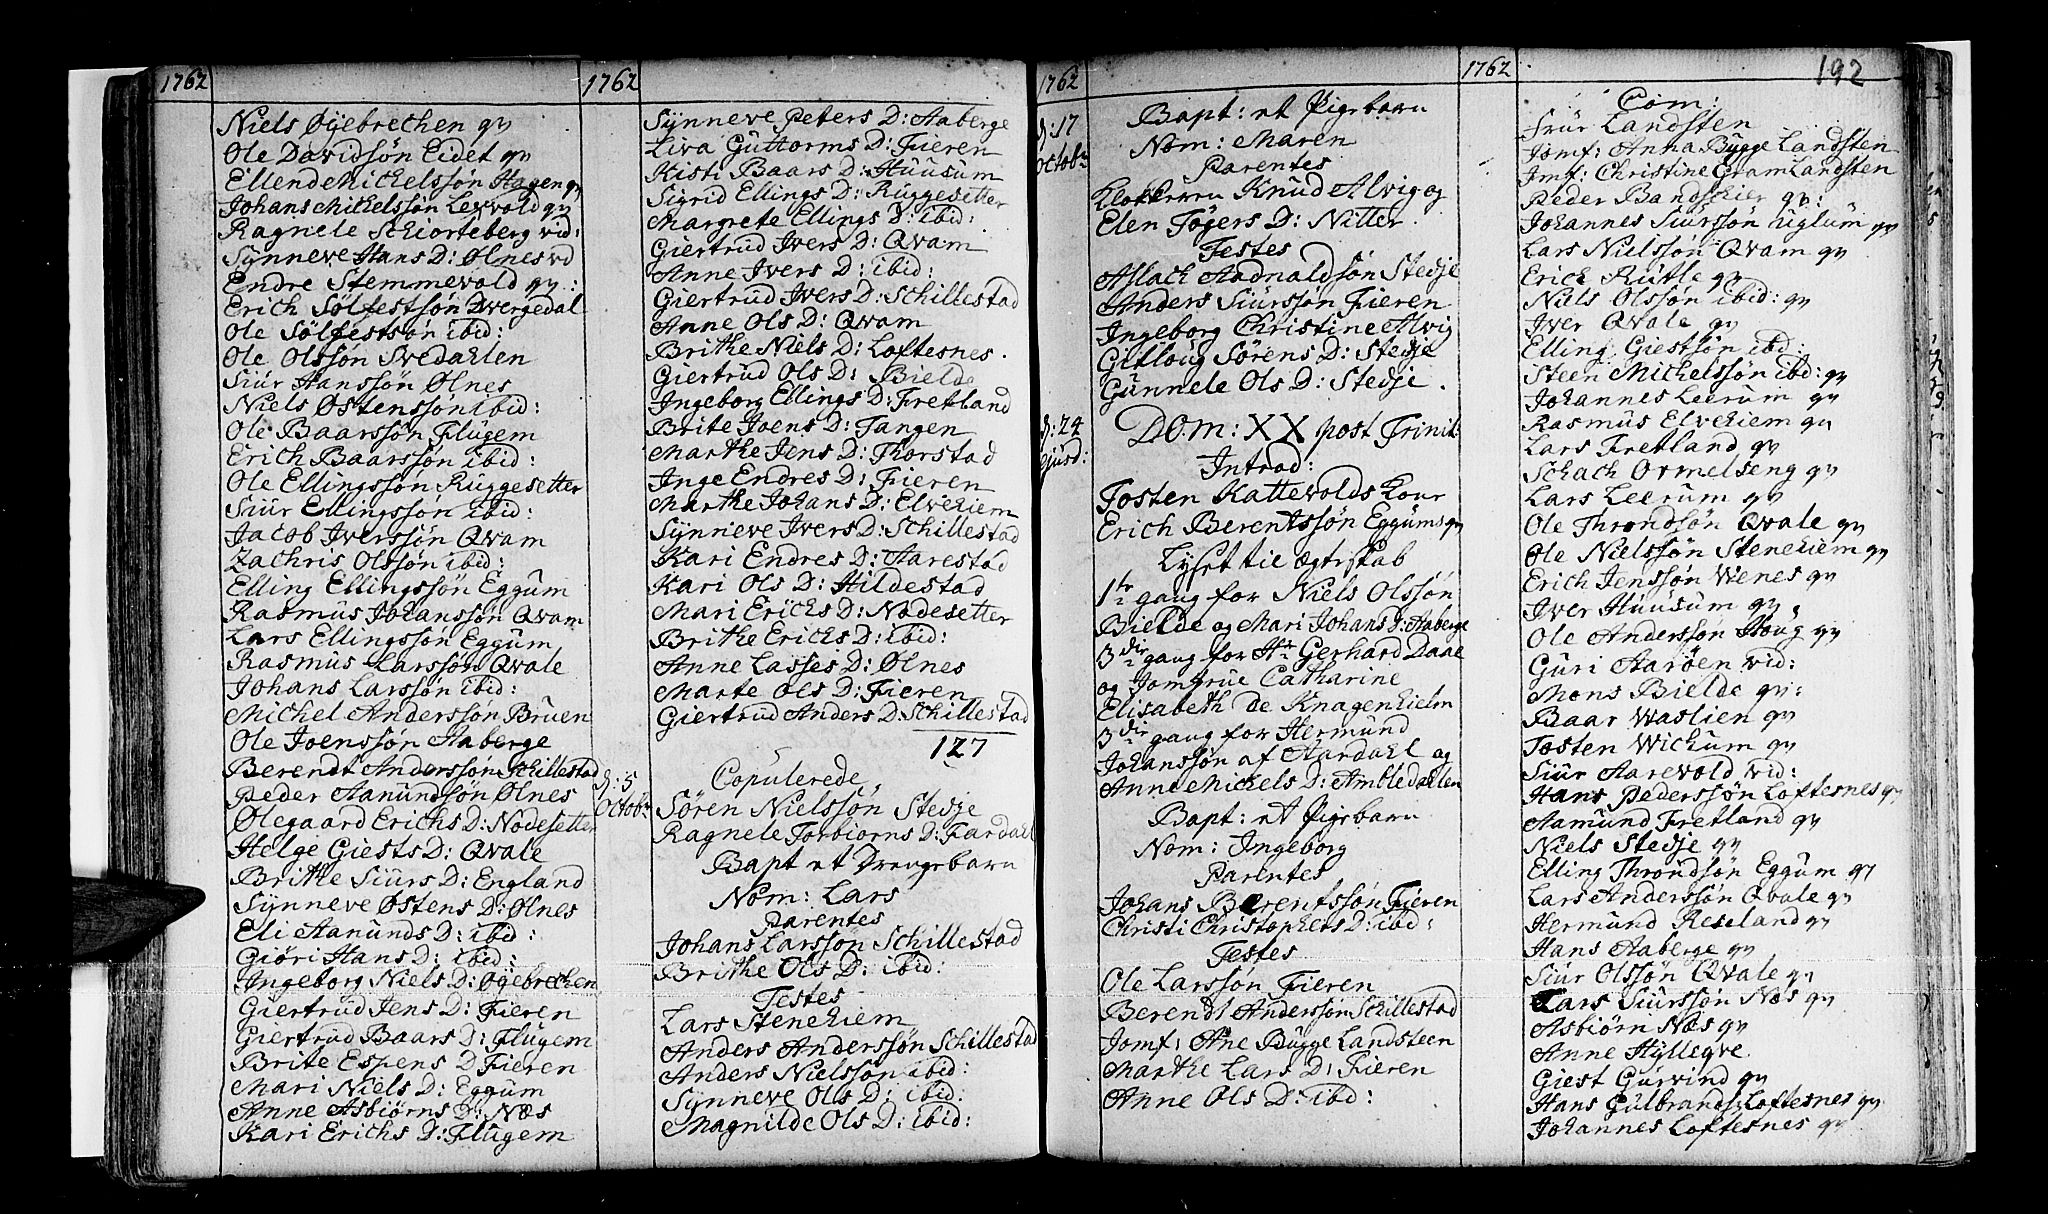 1762
Niels Øyebrechen qv
Ole Davidsøn Eidet qv
Ellend Mickelssøn Hagen qv
Johans Mickelssøn Leqvold qv
Ragnele Schiorteberg vid:
Sÿnneve Hans D: Ølnes vd
Endre Stemmevold qv:
Erich Sølfestsøn Dvergedal
Ole Sølfestsøn ibid:
Ole Olssøn Svedahlen
Siur Hanssøn Ølnes
Niels Østenssøn ibid:
Ole Baarssøn Flügem
Erich Baarssøn ibid:
Ole Ellingssøn Rüggesetter
Siur Ellingssøn ibid:
Jacob Iverssøn Qvam
Zachris Olssøn ibid:
Elling Ellingssøn Eggüm
Rasmus Johanssøn Qvam
Lars Ellingssøn Eggüm
Rasmus Larssøn Qvale
Johans Larssøn ibid:
Michel Anderssøn Bruen
Ole Joenssøn Aaberge
Berendt Anderssøn Schillestad
Peder Aamündsøn Ølnes
Olegaard Erichs D: Nodesetter
Helge Giests D: Qvale
Brithe Siürs D: England
Sÿnneve Østens D: Ølnes
Eli Aamünds D: ibid:
Giøri Hans D: ibid:
Ingeborg Niels D: Øyebrechen
Giertrud Jens D: Fieren
Giertrüd Baars D: Flügem
Brite Espens D Fieren
Mari Niels D: Eggüm
Anne Asbiørns D: Næs
Kari Erichs D: Flügem
1762
Sÿnneve Peters D: Aaberge
Liva Guttorms D: Fieren
Kisti Baars D: Huusum
Sigrid Ellings D: Rüggesetter
Margrete Ellings D: ibid:
Giertrüd Ivers D: Qvam
Anne Ivers D: ibid:
Giertrüd Ivers D: Schillestad
Anne Ols D: Qvam
Brithe Niels D: Loftesnes.
Giertrüd Ols D: Bielde
Ingeborg Ellings D: Fretland
Brite Joens D: Tangen
Marthe Jens D: Thorstad
Inge Endres D: Fieren
Marthe Johans D: Elvekiem
Sÿnneve Ivers D: Schillestad
Kari Endres D: Harestad
Kari Ols D: Hildestad
Mari Erichs D: Nodesetter
Brithe Erichs D: ibid:
Anne Lasses D: Ølnes
Marte Ols D: Fieren
Giertrüd Anders D: Schillestad
127
Copulerede
d: 5
Octobr
Søren Nielssøn Stedje
Ragnele Torbiørns D: Fardahl
Bapt et Drengebarn
Nom: Lars
Parentes
Johans Larssøn Schillestad
Brithe Ols D: ibid:
Testes
Lars Stenekiem
Anders Anderssøn Schillestad
Anders Nielssøn ibid:
Sÿnneve Ols D: ibid:
Magnilde Ols D: ibid:
1762
d: 17
Octobr
Bapt: et Pigebarn
Nom: Maren
Parentes
Klokkeren Knud Alvig og
Elen Tøgers D: Nitter
Testes
Aslach Aadnaldsøn Stedje
Anders Siurssøn Fieren
Ingeborg Christine Alvig
Gitloug Sørens D: Stedje
Gunnele Ols D: Stedje.
d: 24
ejusd:
DOm: XX post Trinit:
Introd:
Tosten Kattevolds Kone
Erich Berentssøn Eggüms qv
Lyset til Ægteskab
1te gang for Niels Olssøn
Bielde og Mari Johans D: Aaberge
3die gang for Hr Gerhard Daae
og Jomfrue Catharine
Elisabeth de Knagenhielm
3die gang for Hermund
Johanssøn af Aardahl og
Anne Mickels D: Ambledahlen
Bapt: et Pigebarn
Nom: Ingeborg
Parentes
Johans Berentssøn Fieren
Christi Christophers D: ibd:
Testes
Ole Larssøn Fieren
Berendt Anderssøn Schillestad
Jomf: Ane Bügge Landsteen
Marthe Lars D: Fieren
Anne Ols D: ibd:
1762
192
Com:
Frur Landsten
Jomf: Anna Bügge Landsten
Jmf: Christine Gram Landsten
Peder Bandskier qv:
Johannes Siurssøn Uglum qv
Lars Nielssøn Qvam qv
Erich Rutle qv
Niels Olssøn ibid: qv
Iver Qvale qv
Elling Giestsøn ibd:
Steen Mickelssøn ibd: qv
Johannes Leerum qv
Rasmus Elvekiem qv
Lars Fretland qv
Schach Ormelseng qv
Lars Leerum qv
Ole Throndsøn Qvale qv
Ole Nielssøn Stenekiem qv
Erich Jenssøn Wenes qv
Iver Huusum qv
Ole Anderssøn Houg qv
Güri Aarøen vid:
Mons Bielde qv:
Baar Waslien qv
Tosten Wichum qv
Siur Aarevold vid:
Hans Pederssøn Loftesnes qv
Aamund Fretland qv
Niels Stedje qv
Elling Throndsøn Eggum qv
Lars Anderssøn Qvale qv
Hermund Reseland qv
Hans Aaberge qv
Siür Olssøn Qvale qv
Lars Siürssøn Næs qv
Asbiørn Næs qv
Anne Hÿlleqve
Giest Gürvind qv
Hans Gülbrands: Loftesnes qv
Johannes Loftesnes qv